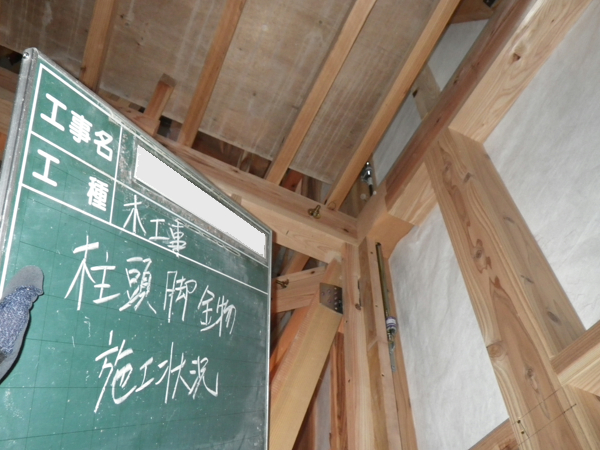 工事名
工種 木工事
柱頭脚金物
施工状況